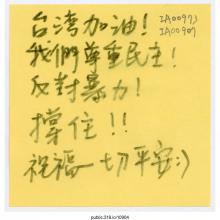 台湾加油!
IA00973
IA00907
我們尊重民主!
反對暴力!
撐住!!
祝福一切平安:)
public.318.io/10904